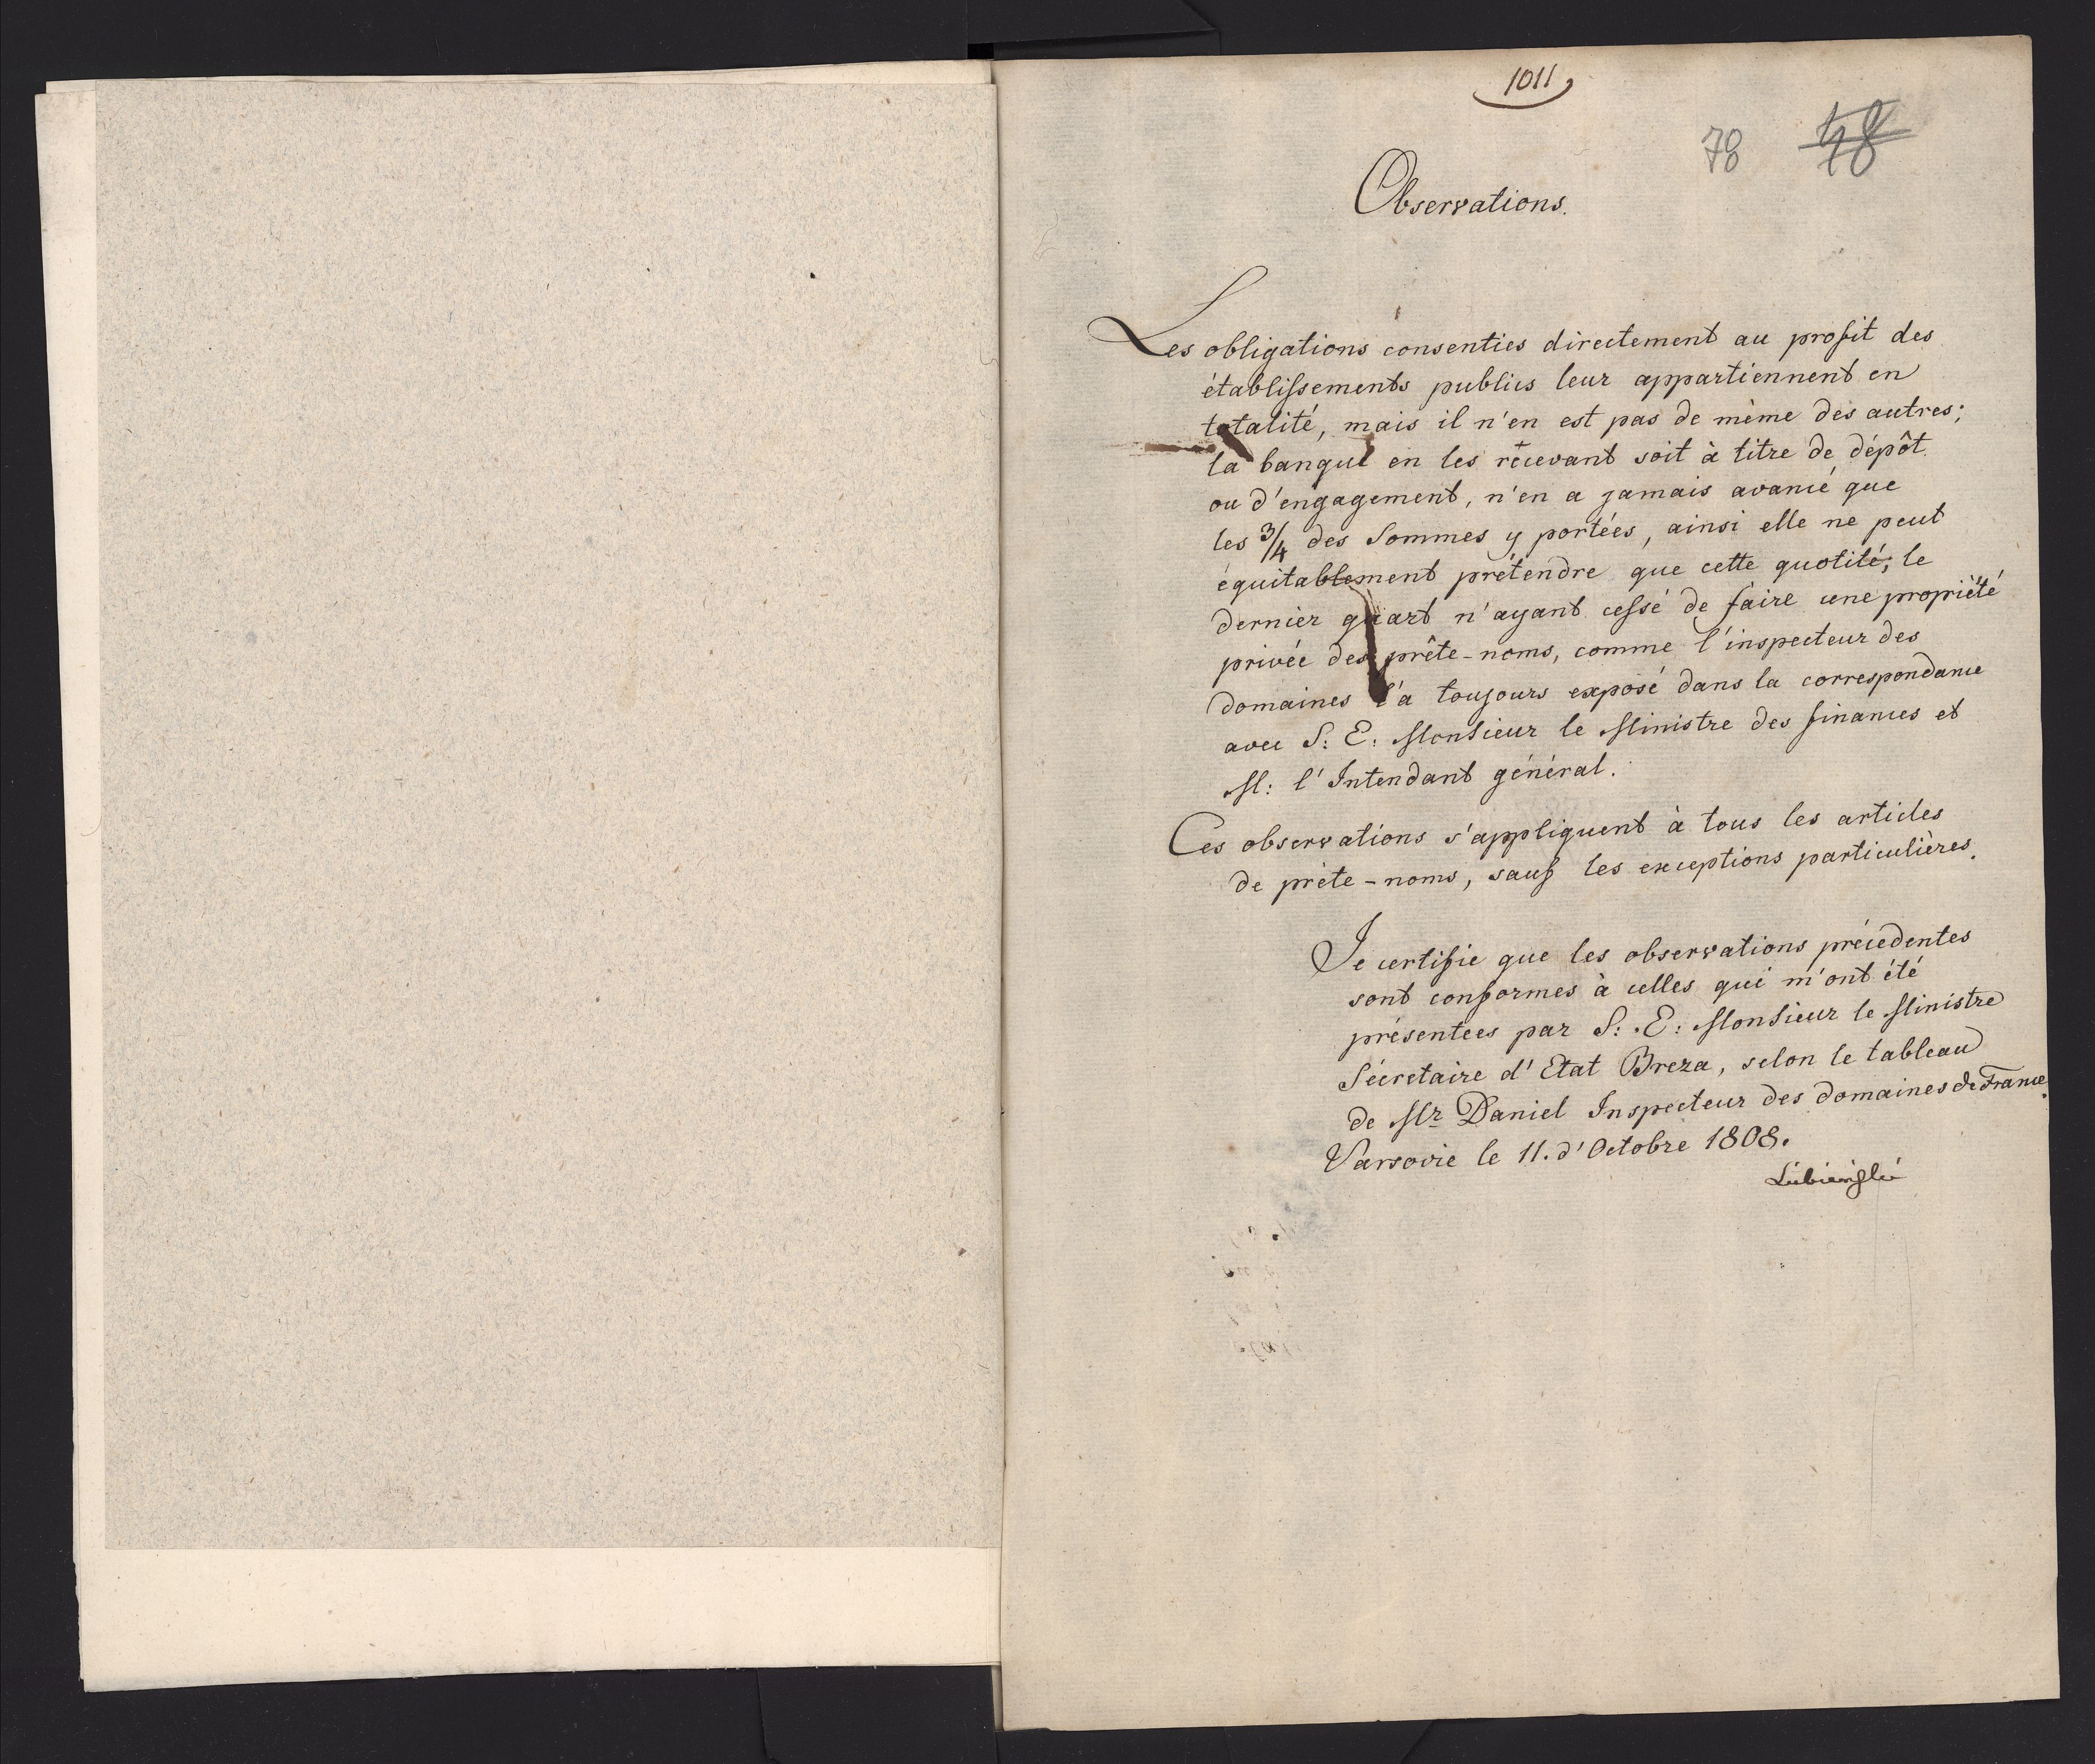 1011
78 48
Observations.
Les obligations consenties directement au profit des
établissements publics leur appartiennent en
totalité, mais il n'en est pas de même des autres;
la banque en les recevant soit à titre de dépôt
ou d'engagement, n'en a jamais avancé que
les 3/4 des Sommes y portées, ainsi elle ne peut
équitablement prétendre que cette quotité; le
dernier quart n'ayant cessé de faire une propriété
privée des prête-noms, comme l'inspecteur des
domaines l'a toujours exposé dans la correspondance
avec S: E: Monsieur le Ministre des finances et
M: l'Intendant général.
Ces observations s'appliquent à tous les articles
de prête-noms, sauf les exceptions particulières.
Je certifie que les observations précedentes
sont conformes à celles qui m'ont été
présentees par S: E: Monsieur le Ministre
Sécretaire d'Etat Breza, selon le tableau
de Mr Daniel Inspecteur des domaines de France.
Varsovie le 11. d'Octobre 1808.
Łubieński